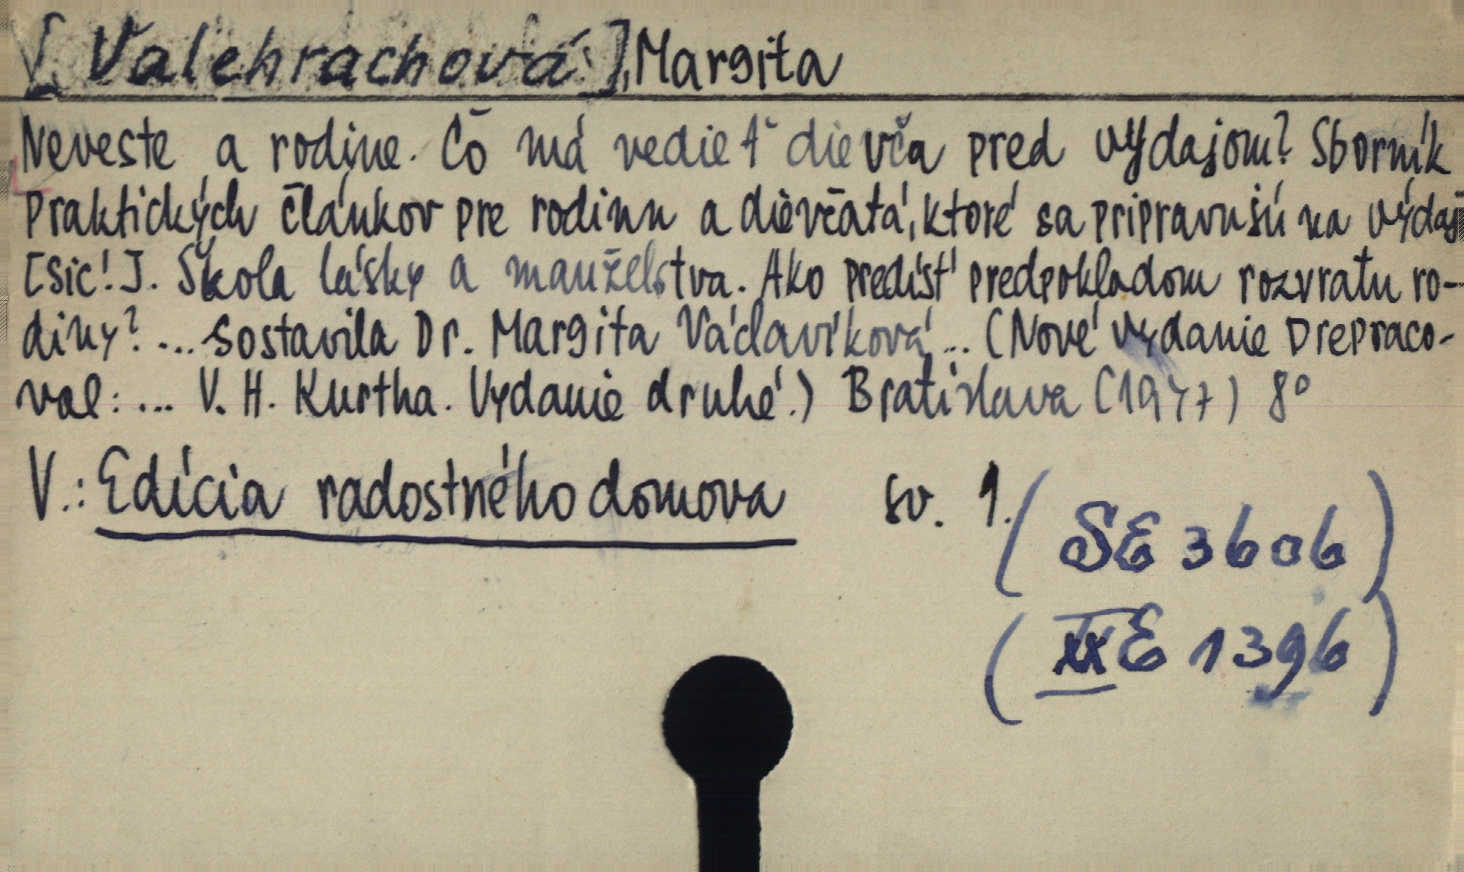 [Valehrachová], Margita
Neveste a rodine. Čo má vedieť dievča pred vydajom? Sborník
praktických článkov pre rodinu a dievčatá, ktoré sa pripravujú na výdaj
[sic!]. Škola lásky a manželstva. Ako predísť predpokladom rozvratu ro-
diny? ... sostavila Dr. Margita Václavíková ... (Nové vydanie prepraco-
val: ... V. H. Kurtha. Vydanie druhé.) Bratislava (1947) 8°
V.: Edícia radostného domova sv. 1.
(SE 3606)
(XX E 1396)